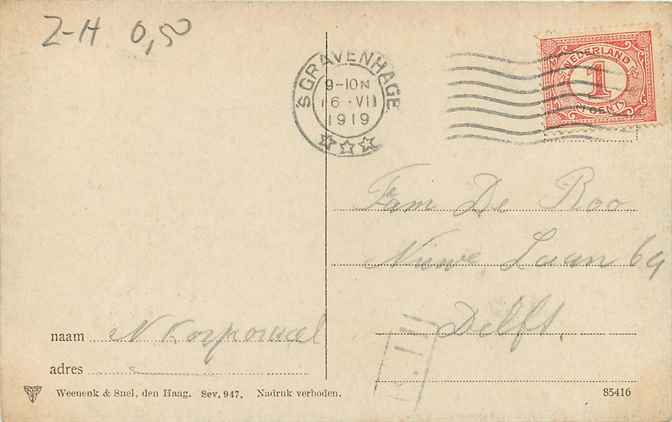 Z-H 0,50
'SGRAVENHAGE
9-10N
16·VII
1919
NEDERLAND
1
CENT
Fam De Roo
Nieuwe Laan 69
Delft.
naam N Korporaal
adres
Weenenk & Snel, den Haag. Sev. 947. Nadruk verboden.
85416